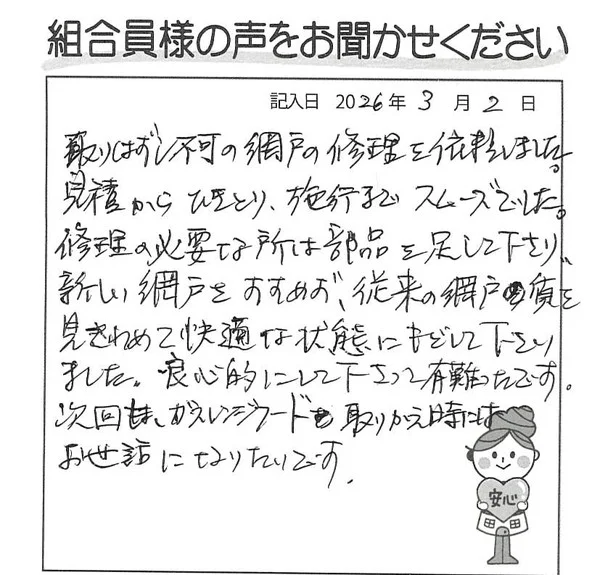 組合員様の声をお聞かせください
記入日 2026年 3月 2日
取りはずし不可の網戸の修理を依頼しました。
見積から ひきとり、施行まで スムーズでした。
修理の必要な所は部品を足して下さり、
新しい網戸をすすめず、従来の網戸の質を
見きわめて快適な状態にもどして下さり
ました。良心的にして下さって有難ったです。
次回は、ガスレンジフードを取りかえ時には
お世話になりたいです。
安心